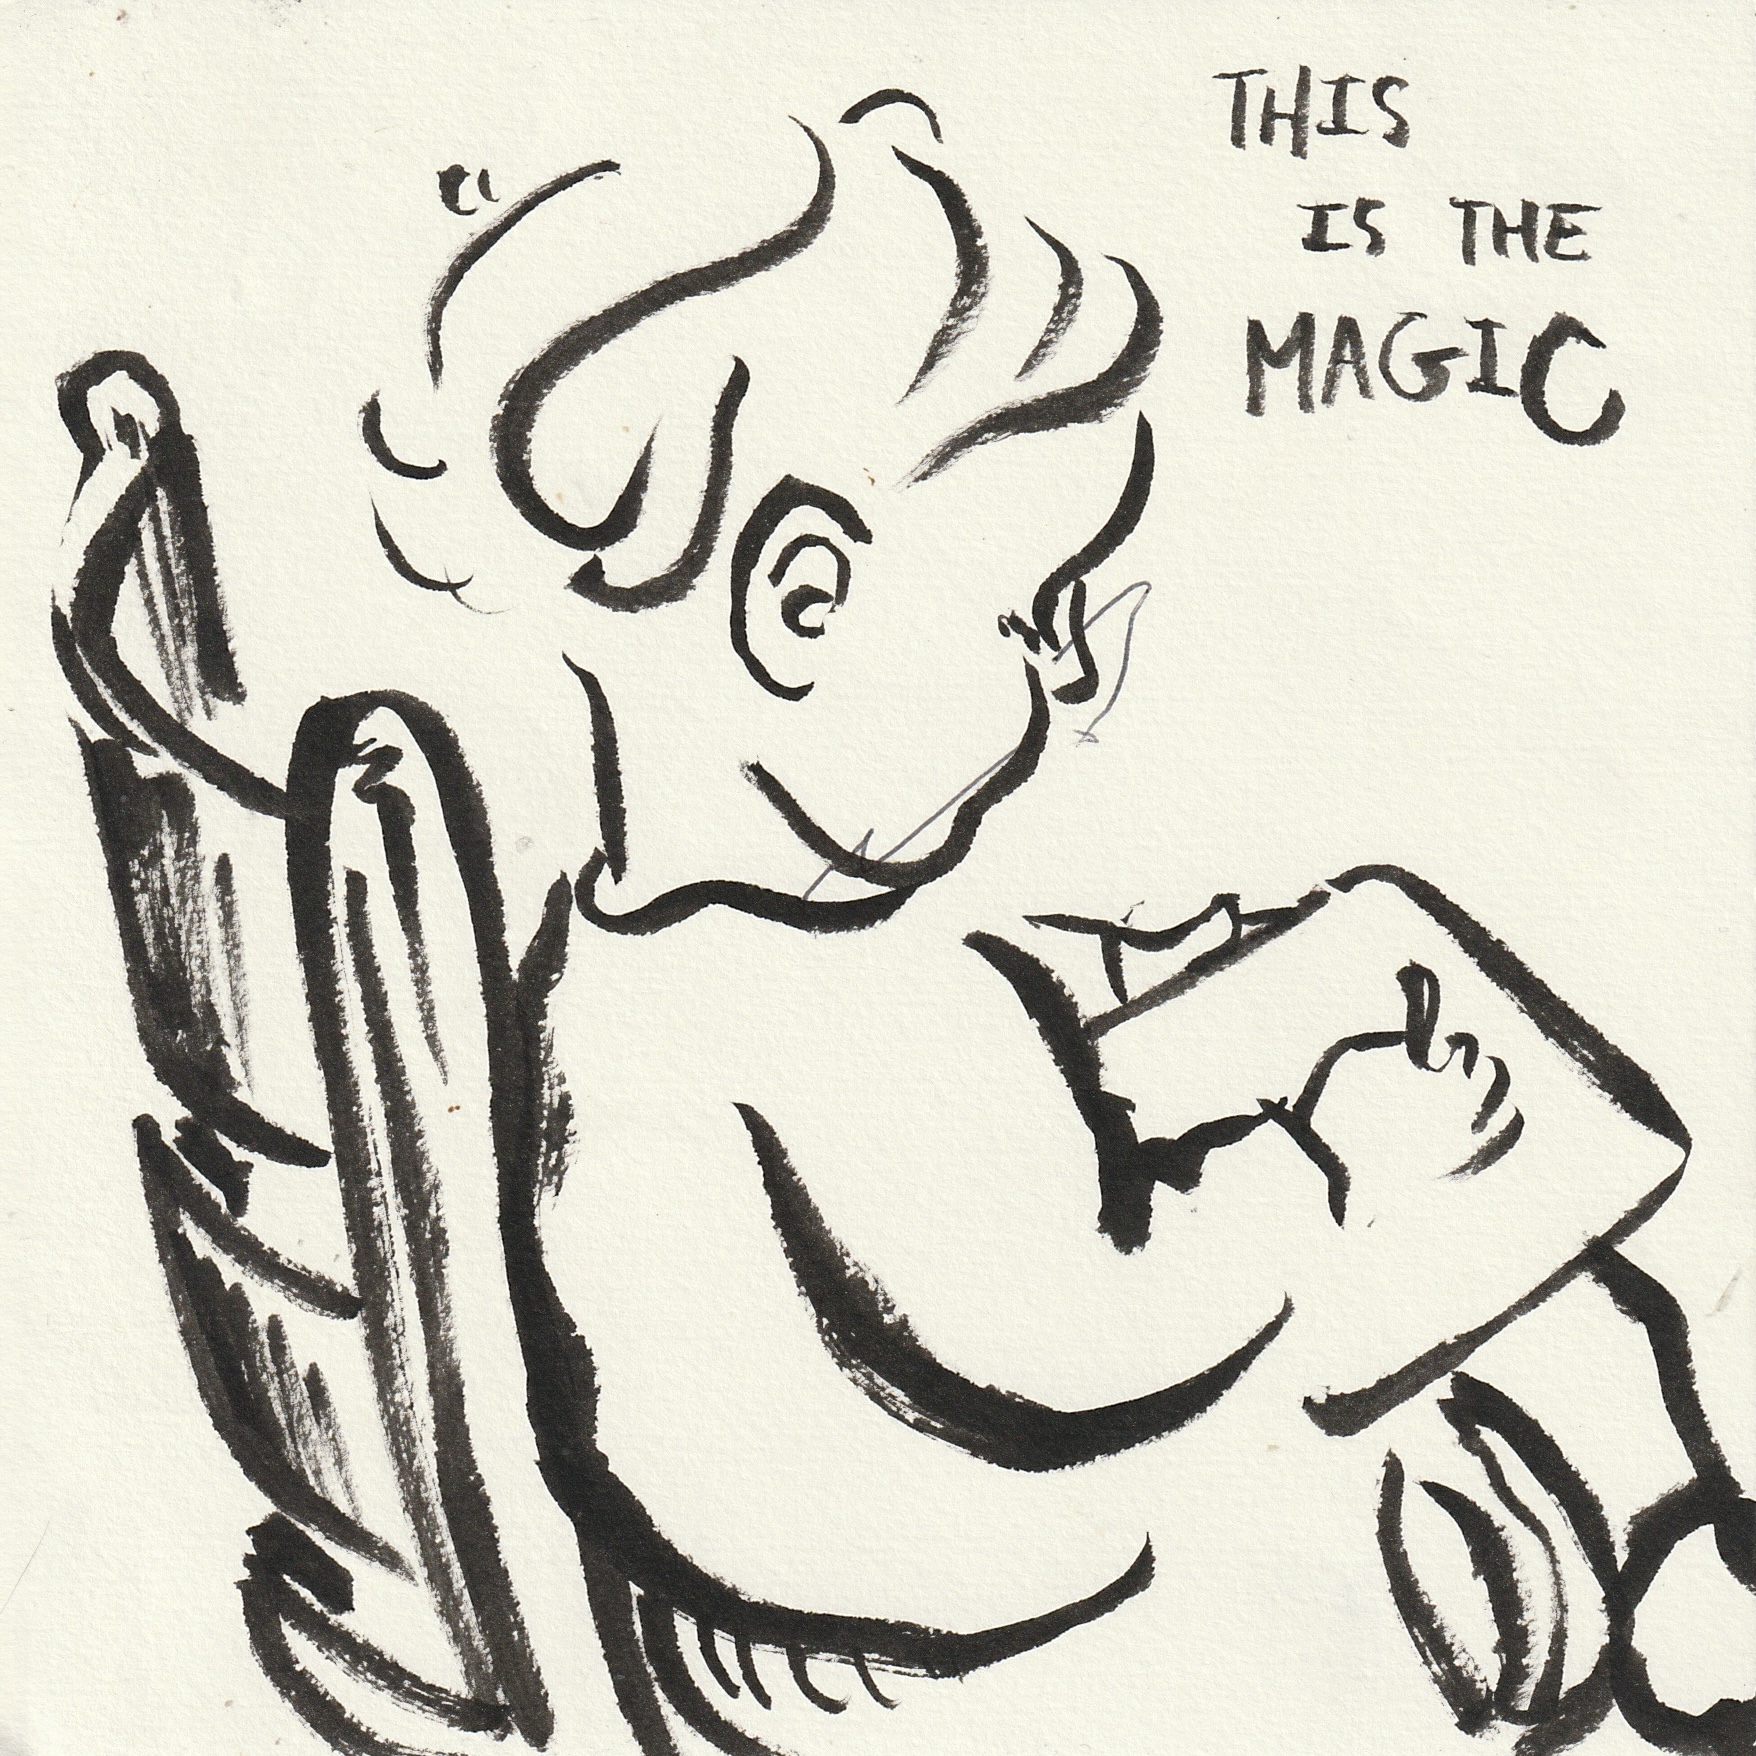 THIS
IS THE
MAGIC